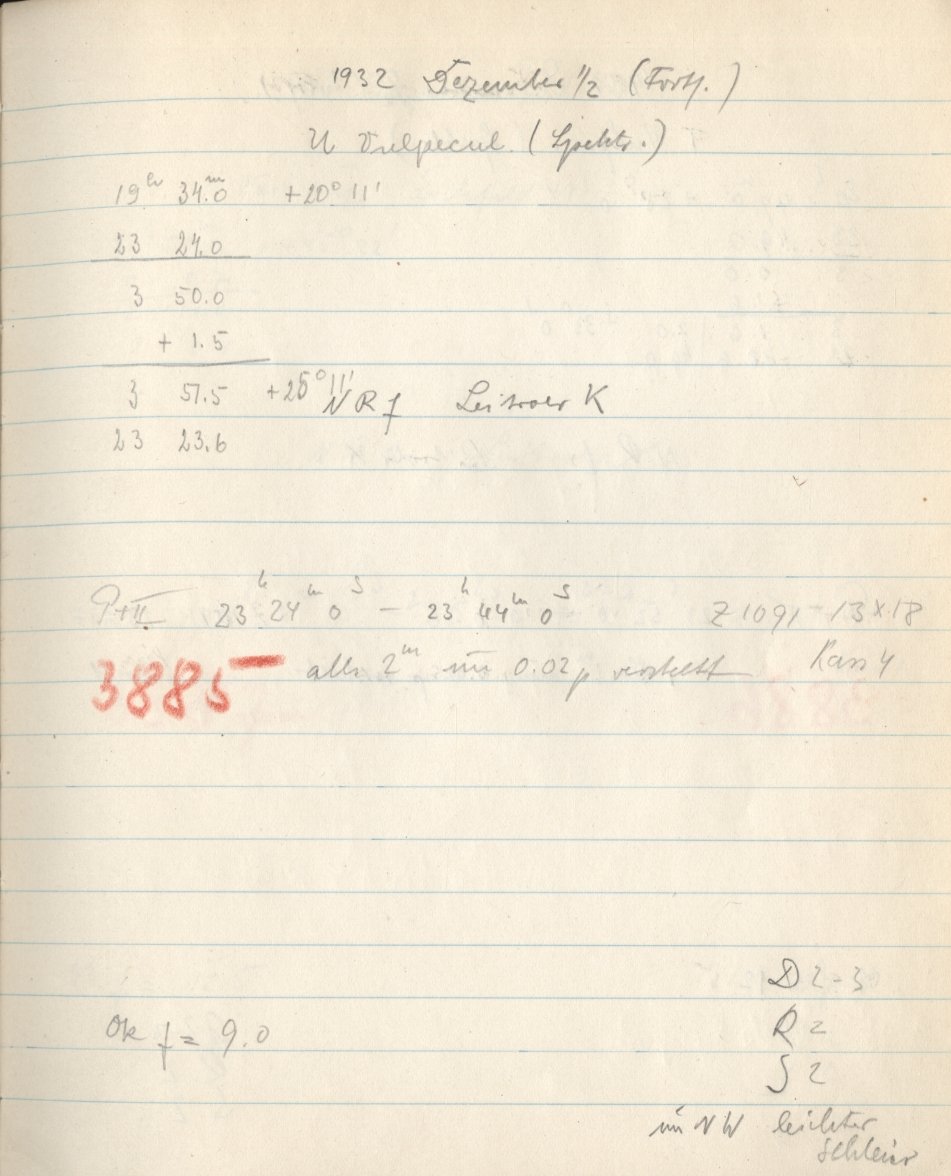 1932 Dezember 1/2 (Forts.)
U Vulpecul. (Spektr.)
19h 34m.0 +20° 11'
23 24.0
3 50.0
+ 1.5
3 51.5 +25° 11' N R f Leitrohr K
23 23.6
P+II 23h 24m 0s – 23h 44m 0s Z 1091 13x18
3885 alle 2m um 0.02 p verstellt Kass 4
D 2-3
Ok f = 9.0 R 2
S 2
im NW leichter
Schleier